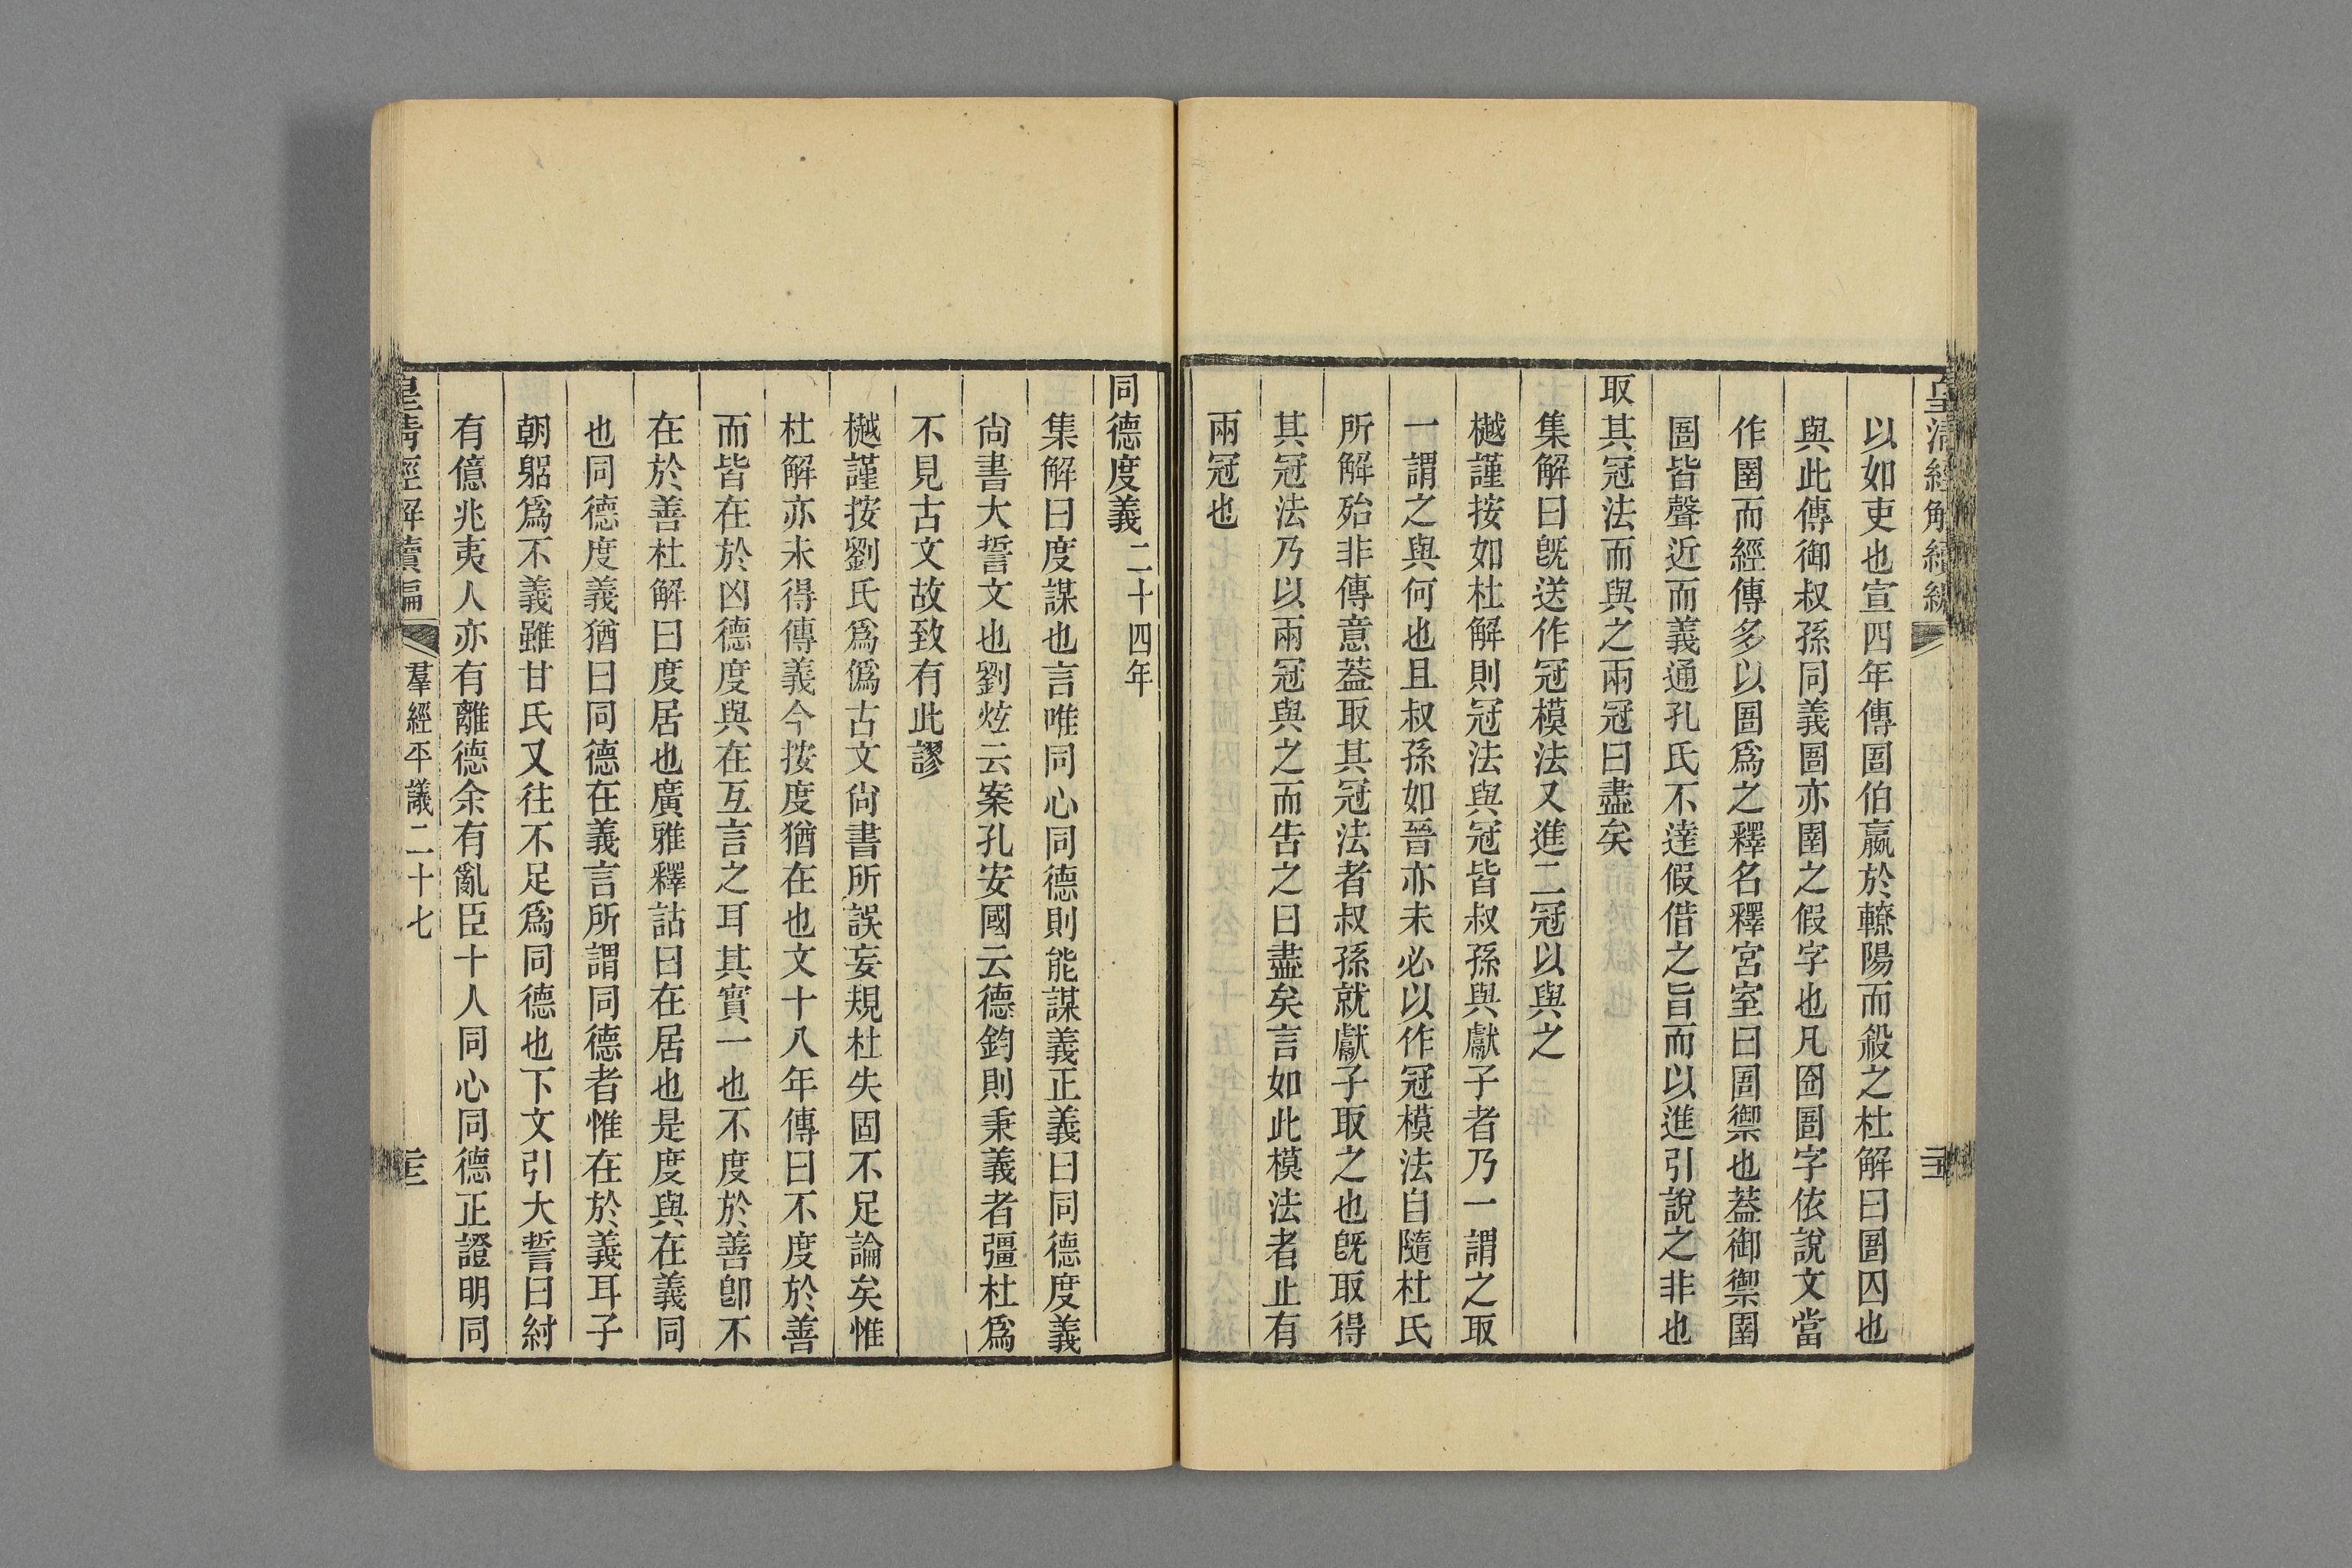 皇清經解續編
以如吏也宣四年傳圄伯嬴於轑陽而殺之杜解曰圄囚也
與此傳御叔孫同義圄亦圉之假字也凡囹圄字依說文當
作圉而經傳多以圄爲之釋名釋宮室曰圄禦也蓋御禦圉
圄皆聲近而義通孔氏不達假借之旨而以進引說之非也
取其冠法而與之兩冠曰盡矣
集解曰旣送作冠模法又進二冠以與之
樾謹按如杜解則冠法與冠皆叔孫與獻子者乃一謂之取
一謂之與何也且叔孫如晉亦未必以作冠模法自隨杜氏
所解殆非傳意蓋取其冠法者叔孫就獻子取之也旣取得
其冠法乃以兩冠與之而告之曰盡矣言如此模法者止有
兩冠也
同德度義二十四年
集解曰度謀也言唯同心同德則能謀義正義曰同德度義
尙書大誓文也劉炫云案孔安國云德鈞則秉義者彊杜爲
不見古文故致有此謬
樾謹按劉氏爲僞古文尙書所誤妄規杜失固不足論矣惟
杜解亦未得傳義今按度猶在也文十八年傳曰不度於善
而皆在於凶德度與在互言之耳其實一也不度於善卽不
在於善杜解曰度居也廣雅釋詁曰在居也是度與在義同
也同德度義猶曰同德在義言所謂同德者惟在於義耳子
朝躳爲不義雖甘氏又往不足爲同德也下文引大誓曰紂
有億兆夷人亦有離德余有亂臣十人同心同德正證明同
皇清經解續編 羣經平議二十七